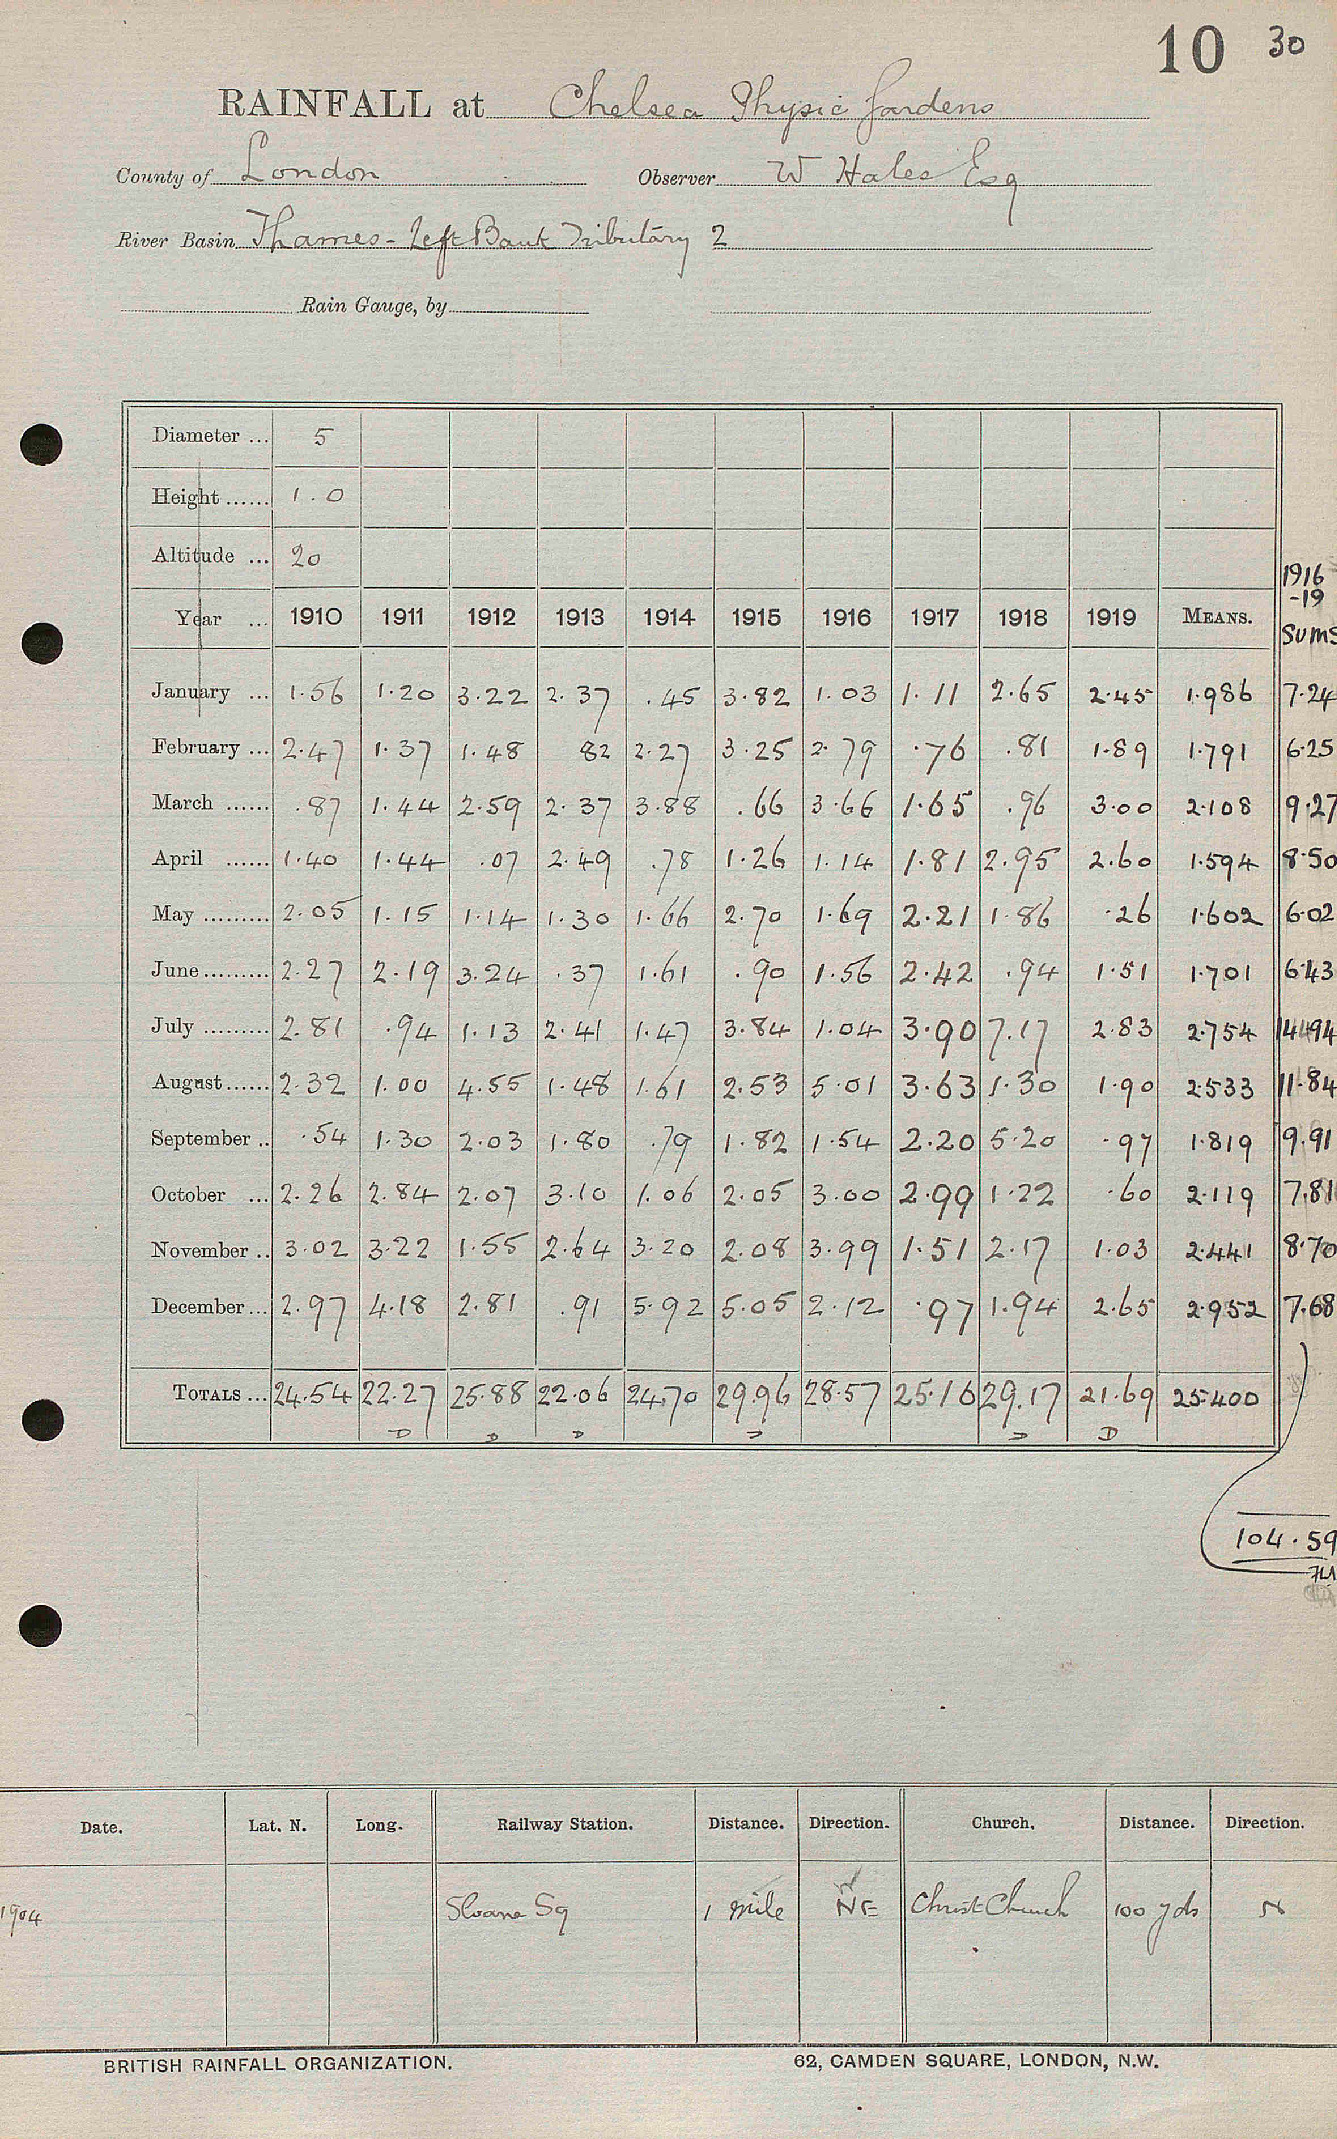 10 30
RAINFALL at Chelsea Physic Gardens
County of London Observer W Hales Esq
River Basin Thames - Left Bank Tributary 2
Rain Gauge, by
Diameter ... 5
Height ...... 1.0
Altitude ... 20
1916
-19
Year ... 1910 1911 1912 1913 1914 1915 1916 1917 1918 1919 MEANS. sums
January ... 1.56 1.20 3.22 2.37 .45 3.82 1.03 1.11 2.65 2.45 1.986 7.24
February ... 2.47 1.37 1.48 82 2.27 3.25 2.79 .76 .81 1.89 1.791 6.25
March ...... .87 1.44 2.59 2.37 3.88 .66 3.66 1.65 .96 3.00 2.108 9.27
April ...... 1.40 1.44 .07 2.49 .78 1.26 1.14 1.81 2.95 2.60 1.594 8.50
May ......... 2.05 1.15 1.14 1.30 1.66 2.70 1.69 2.21 1.86 .26 1.602 6.02
June ......... 2.27 2.19 3.24 .37 1.61 .90 1.56 2.42 .94 1.51 1.701 6.43
July ......... 2.81 .94 1.13 2.41 1.47 3.84 1.04 3.90 7.17 2.83 2.754 14.94
August ...... 2.32 1.00 4.55 1.48 1.61 2.53 5.01 3.63 1.30 1.90 2.533 11.84
September .. .54 1.30 2.03 1.80 .79 1.82 1.54 2.20 5.20 .97 1.819 9.91
October ... 2.26 2.84 2.07 3.10 1.06 2.05 3.00 2.99 1.22 .60 2.119 7.81
November .. 3.02 3.22 1.55 2.64 3.20 2.08 3.99 1.51 2.17 1.03 2.441 8.70
December ... 2.97 4.18 2.81 .91 5.92 5.05 2.12 .97 1.94 2.65 2.952 7.68
TOTALS ... 24.54 22.27 25.88 22.06 24.70 29.96 28.57 25.16 29.17 21.69 25.400
D D D D D D
104.59
Date. Lat. N. Long. Railway Station. Distance. Direction. Church. Distance. Direction.
1904 Sloane Sq 1 mile NE Christ Church 100 yds N
BRITISH RAINFALL ORGANIZATION. 62, CAMDEN SQUARE, LONDON, N.W.